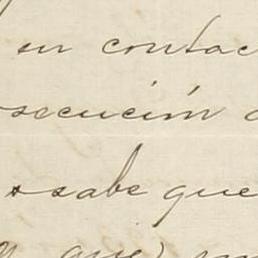 en contac
secución
sabe que
que